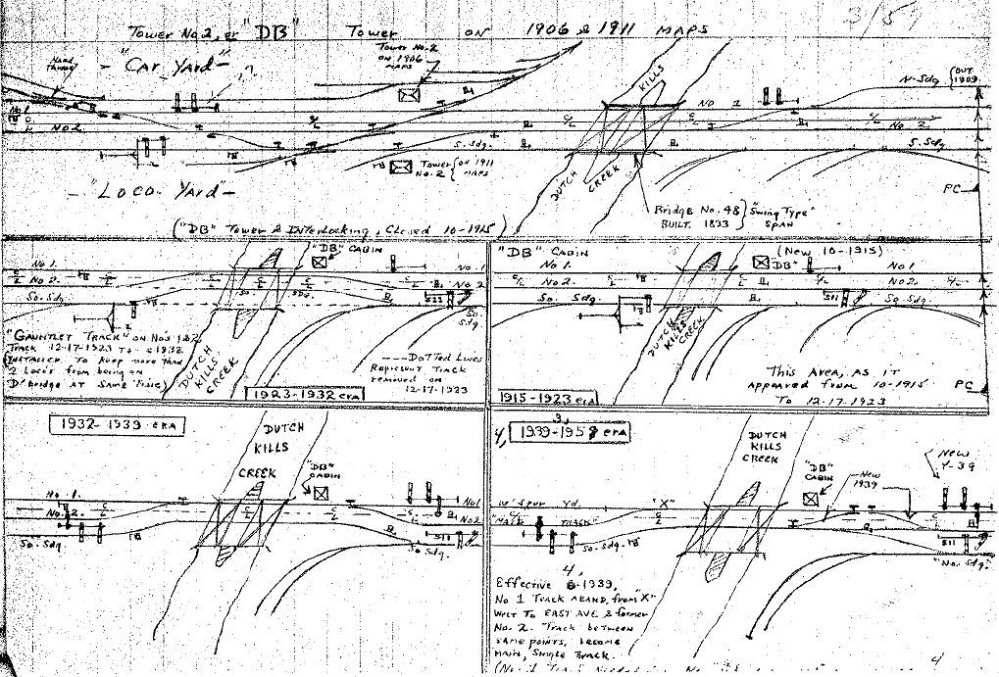 Tower No.2, or "DB" Tower on 1906 & 1911 MAPS
Hand thrown
- "Car Yard" -
Tower No.2
on 1906
MAPS
KILLS
N-Sdg
{OUT
1909.
No 1
No1
No 2.
No. 2
S. Sdg.
S. Sdg.
Tower
No. 2
{on 1911
MAPS
-"Loco- Yard"-
DUTCH
CREEK
PC
Bridge No. 48
BUILT. 1893
} "Swing Type"
SPAN
("DB" Tower & INterLocking, Closed 10-1915)
"DB" CABIN
No 1.
No. 1
No 2.
No 2
So-Sdg
So. Sdg.
S11
"Gauntlet Track" on Nos 1&2
Track 12-17-1923 To - 1932
(INSTALLED TO KEEP more than
2 Loco's from being on
'D' bridge AT SAME TIME)
DUTCH
KILLS
CREEK
---Dotted Lines
Represent Track
removed on
12-17-1923
1923-1932 era
"DB" CABIN
(New 10-1915)
"DB"
No 1.
No1
No2.
No2.
So. Sdg.
S11
So. Sdg.
DUTCH
KILLS
CREEK
This Area, as it
appeared from 10-1915
To 12-17-1923
PC
1915-1923 era
1932-1939 era
DUTCH
KILLS
CREEK
"DB"
CABIN
No 1.
No. 2.
No1
No2
So-Sdg.
S11
So Sdg.
4, 1939-1958 era
DUTCH
KILLS
CREEK
"DB"
CABIN
New
1939
New
Y-39
Yd.
"X"
So-Sdg.
S11
"No. Sdg."
4,
Effective 6-1939,
No 1 Track ABAND. from "X"
West To EAST AVE & former
No. 2. Track between
same points, became
MAIN, Single Track.
4